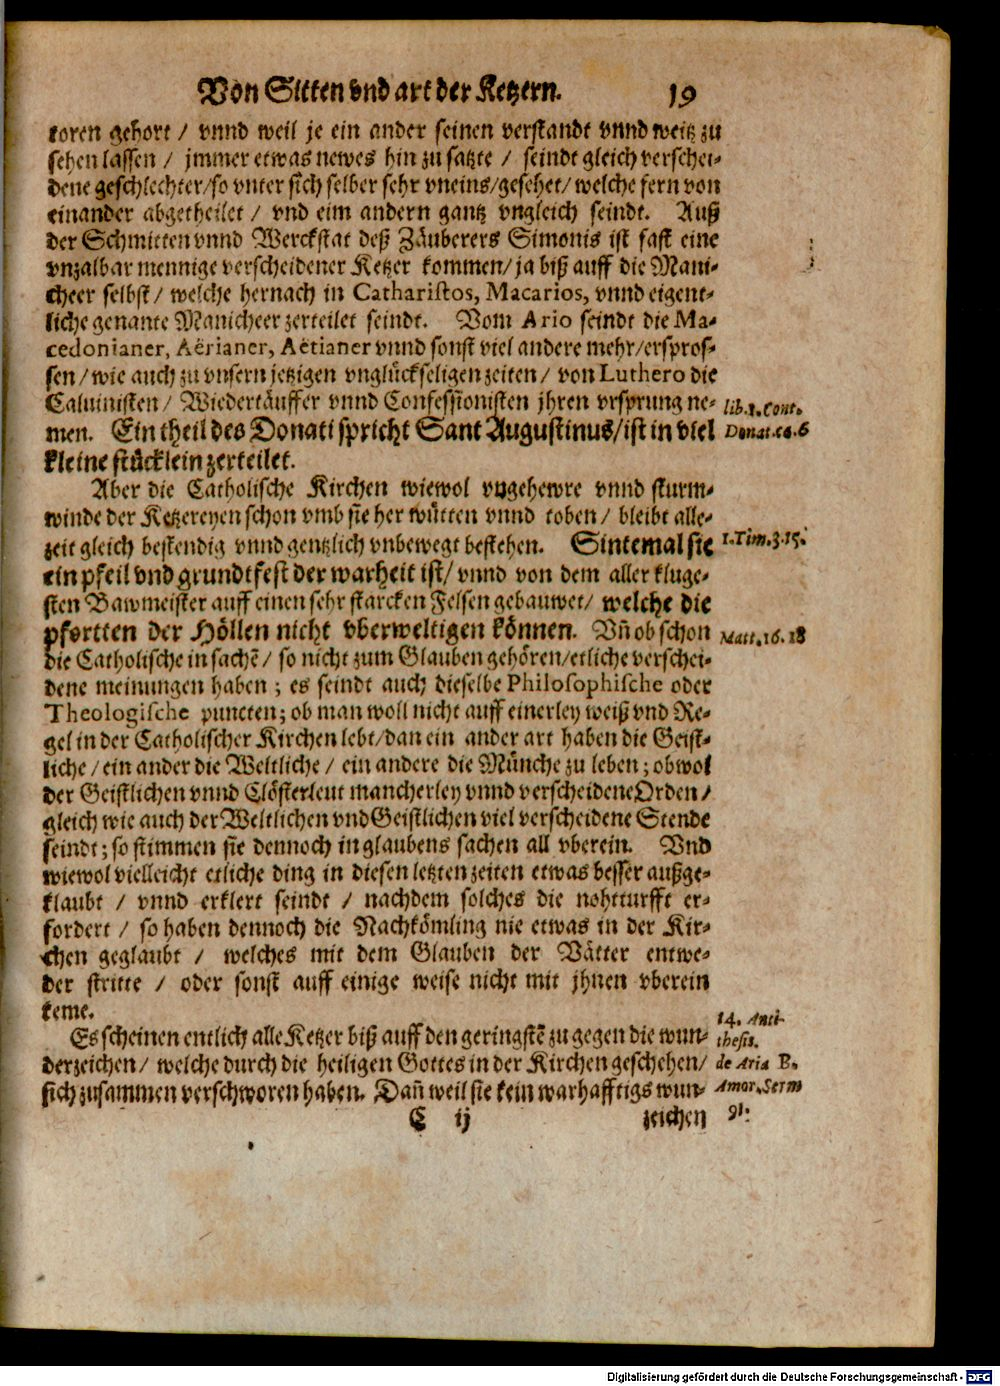 Von Sitten vnd art der Ketzern. 19
toren gehort / vnnd weil je ein ander seinen verstandt vnnd weitz zu
sehen lassen / jmmer etwas newes hin zu satzte / seindt gleich verschei-
dene geschlechter/so vnter sich selber sehr vneins/gesehet/welche fern von
einander abgetheilet / vnd eim andern gantz vngleich seindt. Auß
der Schmitten vnnd Werckstat deß Zäuberers Simonis ist fast eine
vnzalbar mennige verscheidener Ketzer kommen/ja biß auff die Mani-
cheer selbst/ welche hernach in Catharistos, Macarios, vnnd eigent-
liche genante Manicheer zerteilet seindt. Vom Ario seindt die Ma-
cedonianer, Aërianer, Aëtianer vnnd sonst viel andere mehr/erspros-
sen/wie auch zu vnsern jetzigen vnglückseligen zeiten/ von Luthero die
Caluinisten/ Wiedertäuffer vnnd Confessionisten jhren vrsprung ne-
men. Ein theil des Donati spricht Sant Augustinus/ist in viel
kleine stücklein zerteilet.
lib.1.Cont.
Donat.ca.6
Aber die Catholische Kirchen wiewol vngehewre vnnd sturm-
winde der Ketzereyen schon vmb sie her wütten vnnd toben/ bleibt alle-
zeit gleich bestendig vnnd gentzlich vnbewegt bestehen. Sintemal sie
1.Tim.3.15.
ein pfeil vnd grundtfest der warheit ist/ vnnd von dem aller kluge-
sten Bawmeister auff einen sehr starcken Felsen gebauwet/ welche die
pfortten der Höllen nicht vberweltigen können. Vñ ob schon
Matt.16.18
die Catholische in sachẽ/ so nicht zum Glauben gehören/etliche verschei-
dene meinungen haben; es seindt auch dieselbe Philosophische oder
Theologische puncten; ob man woll nicht auff einerley weiß vnd Re-
gel in der Catholischer Kirchen lebt/dan ein ander art haben die Geist-
liche/ein ander die Weltliche/ ein andere die Münche zu leben; obwol
der Geistlichen vnnd Clösterleut mancherley vnnd verscheidene Orden/
gleich wie auch der Weltlichen vnd Geistlichen viel verscheidene Stende
seindt; so stimmen sie dennoch in glaubens sachen all vberein. Vnd
wiewol vielleicht etliche ding in diesen letzten zeiten etwas besser außge-
klaubt / vnnd erklert seindt / nachdem solches die nohtturfft er-
fordert / so haben dennoch die Nachkömling nie etwas in der Kir-
chen geglaubt / welches mit dem Glauben der Vätter entwe-
der stritte / oder sonst auff einige weise nicht mit jhnen vberein
keme.
Es scheinen entlich alle Ketzer biß auff den geringstẽ zu gegen die wun-
derzeichen/ welche durch die heiligen Gottes in der Kirchen geschehen/
sich zusammen verschworen haben. Dañ weil sie kein warhafftigs wun-
14. Anti-
thesis.
de Aria B.
Amor. Serm
91.
C ij zeichen
Digitalisierung gefördert durch die Deutsche Forschungsgemeinschaft - DFG